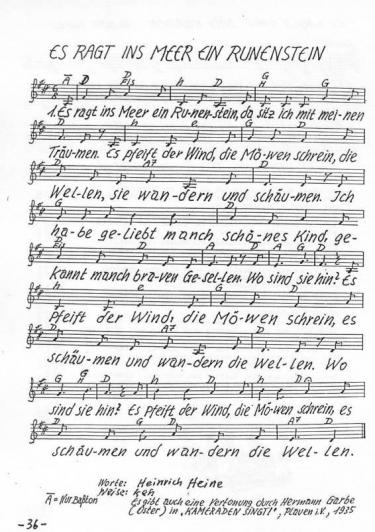 ES RAGT INS MEER EIN RUNENSTEIN
1. Es ragt ins Meer ein Ru-nen-stein, da sitz ich mit mei-nen
Träu-men. Es pfeift der Wind, die Mö-wen schrein, die
Wel-len, sie wan-dern und schäu-men. Ich
ha-be ge-liebt manch schö-nes Kind, ge-
kannt manch bra-ven Ge-sel-len. Wo sind sie hin? Es
pfeift der Wind, die Mö-wen schrein, es
schäu-men und wan-dern die Wel-len. Wo
sind sie hin? Es pfeift der Wind, die Mö-wen schrein, es
schäu-men und wan-dern die Wel-len.
Worte: Heinrich Heine
Weise: keh
A = Nur Baßton
Es gibt auch eine Vertonung durch Hermann Garbe
(Oster) in "KAMERADEN SINGT!", Plauen i.V., 1935
-36-